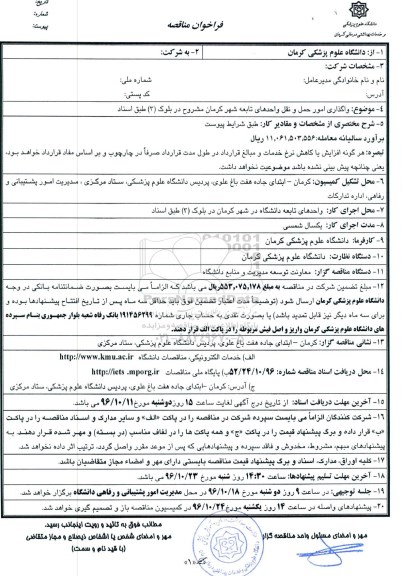 تاریخ:
شماره:
پیوست:
فراخوان مناقصه
۱- از: دانشگاه علوم پزشکی کرمان
۲- به شرکت:
۳- مشخصات شرکت:
نام و نام خانوادگی مدیرعامل:
شماره ملی:
آدرس:
کد پستی:
۴- موضوع: واگذاری امور حمل و نقل واحدهای تابعه شهر کرمان مشروح در بلوک (۳) طبق اسناد
۵- شرح مختصری از مشخصات و مقادیر کار: طبق شرایط پیوست
برآورد سالیانه معامله: ۱۱,۰۶۱,۵۰۳,۵۵۶ ریال
تبصره: هر گونه افزایش یا کاهش نرخ خدمات و مبالغ قرارداد در طول مدت قرارداد صرفاً در چارچوب و بر اساس مفاد قرارداد خواهد بود.
یعنی چنانچه پیش بینی نشده باشد موضوعیت نخواهد داشت.
۶- محل تشکیل کمیسیون: کرمان – ابتدای جاده هفت باغ علوی، پردیس دانشگاه علوم پزشکی، ستاد مرکزی ، مدیریت امور پشتیبانی و
رفاهی، اداره تدارکات
۷- محل اجرای کار: واحدهای تابعه دانشگاه در شهر کرمان در بلوک (۳) طبق اسناد
۸- مدت اجرای کار: یکسال شمسی
۹- کارفرما: دانشگاه علوم پزشکی کرمان
۱۰- دستگاه نظارت: دانشگاه علوم پزشکی کرمان
۱۱- دستگاه مناقصه گزار: معاونت توسعه مدیریت و منابع دانشگاه
۱۲- مبلغ تضمین شرکت در مناقصه به مبلغ ۵۵۳,۰۷۵,۱۷۸ ریال می باشد که الزاماً می بایست بصورت ضمانتنامه بانکی در وجه
دانشگاه علوم پزشکی کرمان ارسال شود (توضیحاً مدت اعتبار تضمین فوق باید حداقل سه ماه پس از تاریخ افتتاح پیشنهادها بوده و
برای سه ماه دیگر نیز قابل تمدید باشد) یا بصورت نقدی به حساب جاری شماره ۱۹۱۴۵۶۲۹۹ بانک رفاه شعبه بلوار جمهوری بنام سپرده
های دانشگاه علوم پزشکی کرمان واریز و اصل فیش مربوطه را در پاکت الف قرار دهند.
۱۳- نشانی مناقصه گزار: کرمان – ابتدای جاده هفت باغ علوی، پردیس دانشگاه علوم پزشکی، ستاد مرکزی
۱۴- محل دریافت اسناد مناقصه شماره: ۵۲/۲۴/۱۰/۹۶
الف) خدمات الکترونیکی، مناقصات دانشگاه http://www.kmu.ac.ir
ب) پایگاه ملی مناقصات http://iets .mporg.ir
ج) آدرس: کرمان – ابتدای جاده هفت باغ علوی، پردیس دانشگاه علوم پزشکی، ستاد مرکزی
۱۵- آخرین مهلت دریافت اسناد: از تاریخ درج آگهی لغایت ساعت ۱۵ روز دوشنبه مورخ ۹۶/۱۰/۱۱ می باشد.
۱۶- شرکت کنندگان الزاماً می بایست سپرده شرکت در مناقصه را در پاکت «الف» و سایر مدارک و اسناد مناقصه را در پاکت
«ب» قرار داده و برگ پیشنهاد قیمت را در پاکت «ج» و همه پاکت ها را در لفافی مناسب (در بسته) و مهر شده قرار دهند. به
پیشنهادهای مبهم، مشروط، مخدوش و فاقد سپرده و پیشنهادهایی که پس از موعد مقرر واصل گردد، ترتیب اثر داده نخواهد شد.
۱۷- کلیه اوراق، مدارک، اسناد و برگ پیشنهاد قیمت مناقصه بایستی دارای مهر و امضاء مجاز متقاضیان باشد.
۱۸- آخرین مهلت تسلیم پیشنهادها: ساعت ۱۴:۳۰ روز شنبه مورخ ۹۶/۱۰/۲۳ می باشد.
۱۹- جلسه توجیهی: در ساعت ۹ روز دو شنبه مورخ ۹۶/۱۰/۱۸ در محل مدیریت امور پشتیبانی و رفاهی دانشگاه برگزار خواهد شد.
۲۰- پیشنهادهای واصله در ساعت ۱۴ روز یکشنبه مورخ ۹۶/۱۰/۲۴ در کمیسیون مناقصه باز و تصمیم گیری خواهد شد.
مطالب فوق به تائید و رویت اینجانب رسید.
مهر و امضای مسئول واحد مناقصه گزار
مهر و امضای شخص یا اشخاص ذیصلاح و مجاز متقاضی
(با قید نام و سمت)